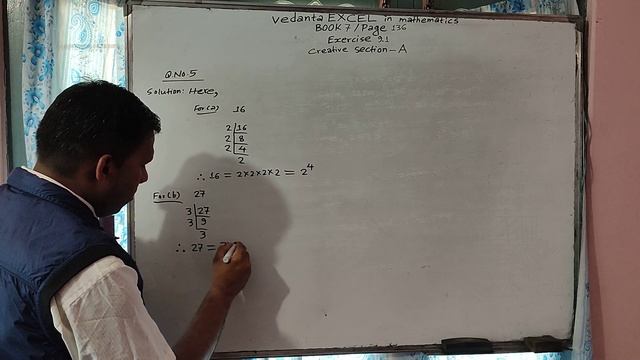 Vedanta EXCEL in mathematics
BOOK 7 / Page 136
Exercise 9.1
Creative section-A
Q.No.5
Solution: Here,
For(a) 16
2 | 16
2 | 8
2 | 4
2
∴ 16 = 2×2×2×2 = 2⁴
For(b) 27
3 | 27
3 | 9
3
∴ 27 =